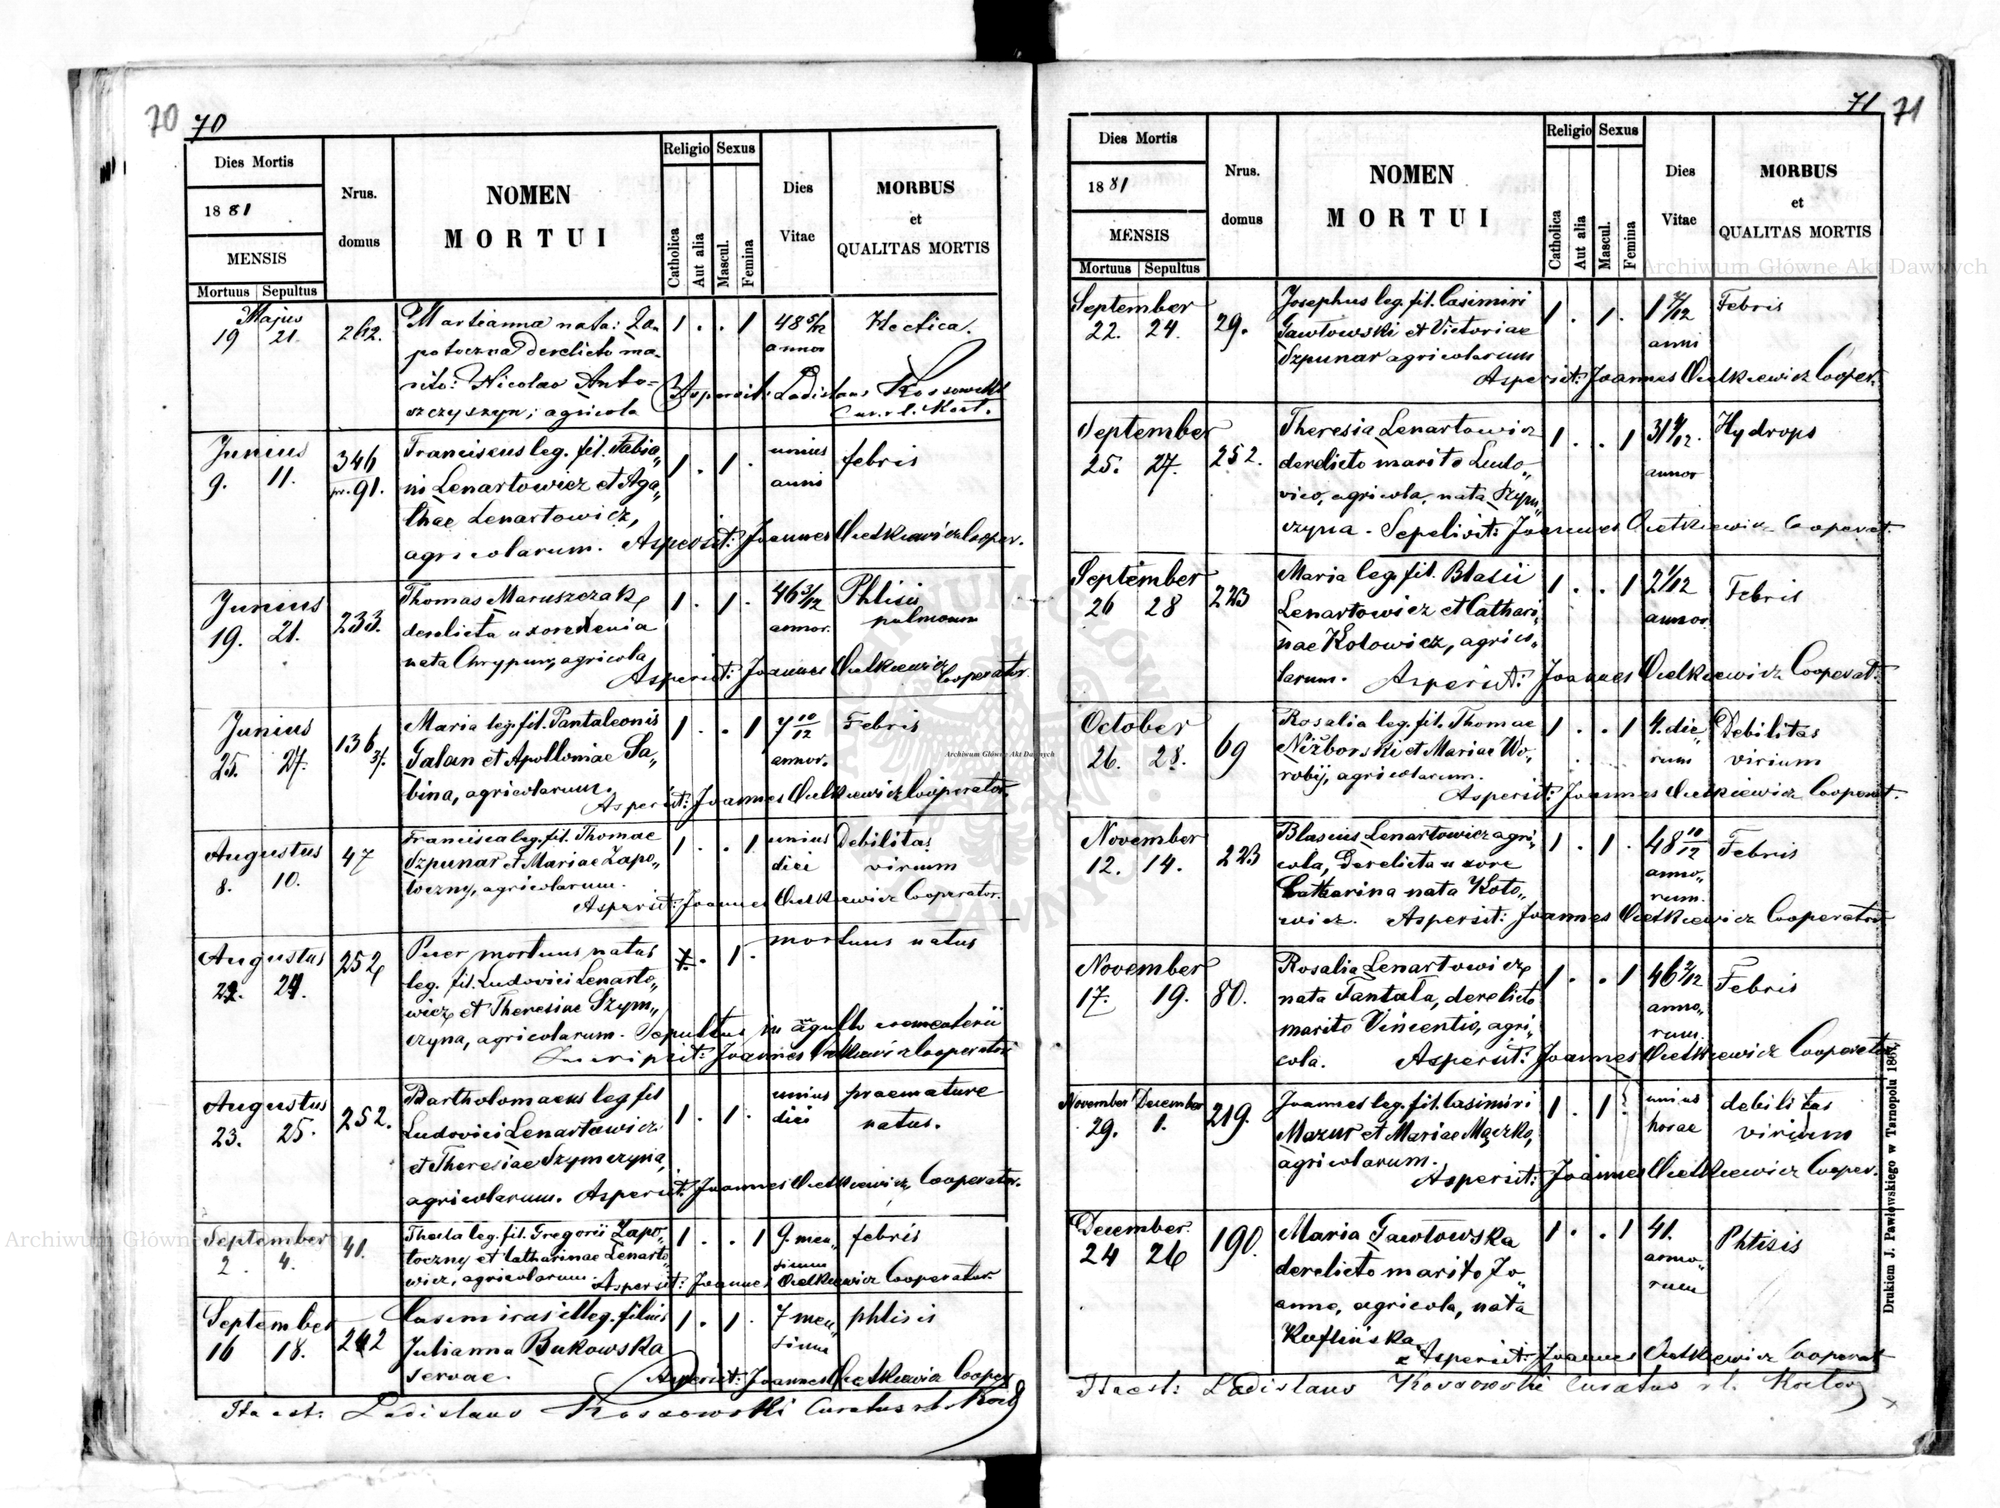 70
70
Dies Mortis
1881
MENSIS
Mortuus Sepultus
Nrus. domus
NOMEN
MORTUI
Religio Sexus
Catholica
Aut alia
Mascul.
Femina
Dies Vitae
MORBUS
et
QUALITAS MORTIS
Majus
19 21. 262. Marianna nata: Za- 1 . . 1 48 5/12 annor Hectica.
potoczna derelicto ma-
rito: Nicolao Anto-
szczyszyn; agricola
Aspersit: Ladislaus Kossowski
Cur. r. l. Kort.
Junius
9. 11. 346 pr. 91. Franciscus leg. fil. Fabia„ 1 . 1 . unius anni febris
ni Lenartowicz et Aga„
thae Lenartowicz,
agricolarum. Aspersit: Joannes Cooper.
Junius
19. 21. 233. Thomas Maruszczak, 1 . 1 . 46 3/12 annor. Phtisis pulmonum
derelicta uxore Xenia
nata Chrypun, agricola
Aspersit: Joannes Cooperator
Junius
25. 27. 136 Maria leg. fil. Pantaleonis 1 . . 1 7 10/12 annor. Febris
Galan et Apolloniae Sa„
bina, agricolarum.
Aspersit: Joannes Cooperator.
Augustus
8. 10. 47 Francisca leg. fil. Thomae 1 . . 1 unius diei Debilitas virium
Szpunar et Mariae Zapo„
toczny, agricolarum.
Aspersit: Joannes Cooperator.
Augustus
24. 252 Puer mortuus natus . 1 . mortuus natus
leg. fil. Ludovici Lenarto„
wicz et Theresiae Szym„
czyna, agricolarum. Sepultus in angulo coemeterii
Inscripsit: Joannes Cooperator
Augustus
23. 25. 252. Bartholomaeus leg. fil 1 . 1 . unius diei praemature natus.
Ludovici Lenartowicz
et Theresiae Szymczyna,
agricolarum. Aspersit: Joannes Cooperator.
September
2. 4. 41. Thecla leg. fil. Gregorii Zapo„ 1 . . 1 9. men„ sium febris
toczny et Catharinae Lenarto
wicz, agricolarum. Aspersit: Joannes Cooperator.
September
16 18. 242 Casimirus illeg. filius 1 . 1 . 7 men„ sium phtisis
Julianna Bukowska
servae. Aspersit: Joannes Cooper
Ita est: Ladislaus Kossowski Curatus r. l.
71
71
Dies Mortis
1881
MENSIS
Mortuus Sepultus
Nrus. domus
NOMEN
MORTUI
Religio Sexus
Catholica
Aut alia
Mascul.
Femina
Dies Vitae
MORBUS
et
QUALITAS MORTIS
September
22. 24. 29. Josephus leg. fil. Casimiri 1 . 1 . anni Febris
Gawłowski et Victoriae
Szpunar agricolarum
Aspersit: Joannes Cooper.
September
25. 27. 252. Theresia Lenartowicz 1 . . 1 annor Hydrops
derelicto marito Ludo„
vico, agricola, nata Szym„
czyna. Sepelivit: Joannes Cooperat.
September
26 28 223 Maria leg. fil. Blasii 1 . . 1 2 1/12 annor Febris
Lenartowicz et Cathari„
nae Kotowicz, agrico„
larum. Aspersit: Joannes Cooperat.
October
26. 28. 69 Rosalia leg. fil. Thomae 1 . . 1 4. die„ rum Debilitas virium
Niżborski et Mariae Wo„
robij, agricolarum.
Aspersit: Joannes Cooperat.
November
12. 14. 223 Blasius Lenartowicz agri„ 1 . 1 . 48 10/12 anno„ rum. Febris
cola, Derelicta uxore
Catharina nata Koto„
wicz. Aspersit: Joannes Cooperator
November
17. 19. 80. Rosalia Lenartowicz 1 . . 1 46 2/12 anno„ rum. Febris
nata Tantała, derelicto
marito Vincentio, agri„
cola. Aspersit: Joannes Cooperator
November December
29. 1. 219. Joannes leg. fil. Casimiri 1 . 1 . unius horae debilitas virium
Mazur et Mariae Mączko,
agricolarum.
Aspersit: Joannes Cooper.
December.
24 26 190. Maria Gawłowska 1 . . 1 41. anno„ rum Phtisis
derelicto marito Jo„
anne, agricola, nata
Kuflińska
Aspersit: Joannes Cooperat
Ita est: Ladislaus Kossowski Curatus r. l.
Drukiem J. Pawłowskiego w Tarnopolu 1867.
Archiwum Główne Akt Dawnych
Archiwum Główne Akt Dawnych
ARCHIWUM GŁÓWNE AKT DAWNYCH